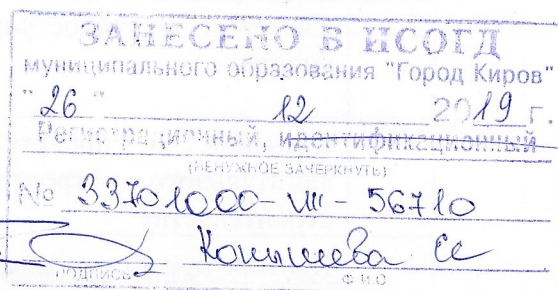 ЗАНЕСЕНО В ИСОГД
муниципального образования "Город Киров"
"26" 12 2019 г.
Регистрационный, идентификационный
(НЕНУЖНОЕ ЗАЧЕРКНУТЬ)
№ 33701000-VIII-56710
Конышева ЕС
ПОДПИСЬ Ф И О